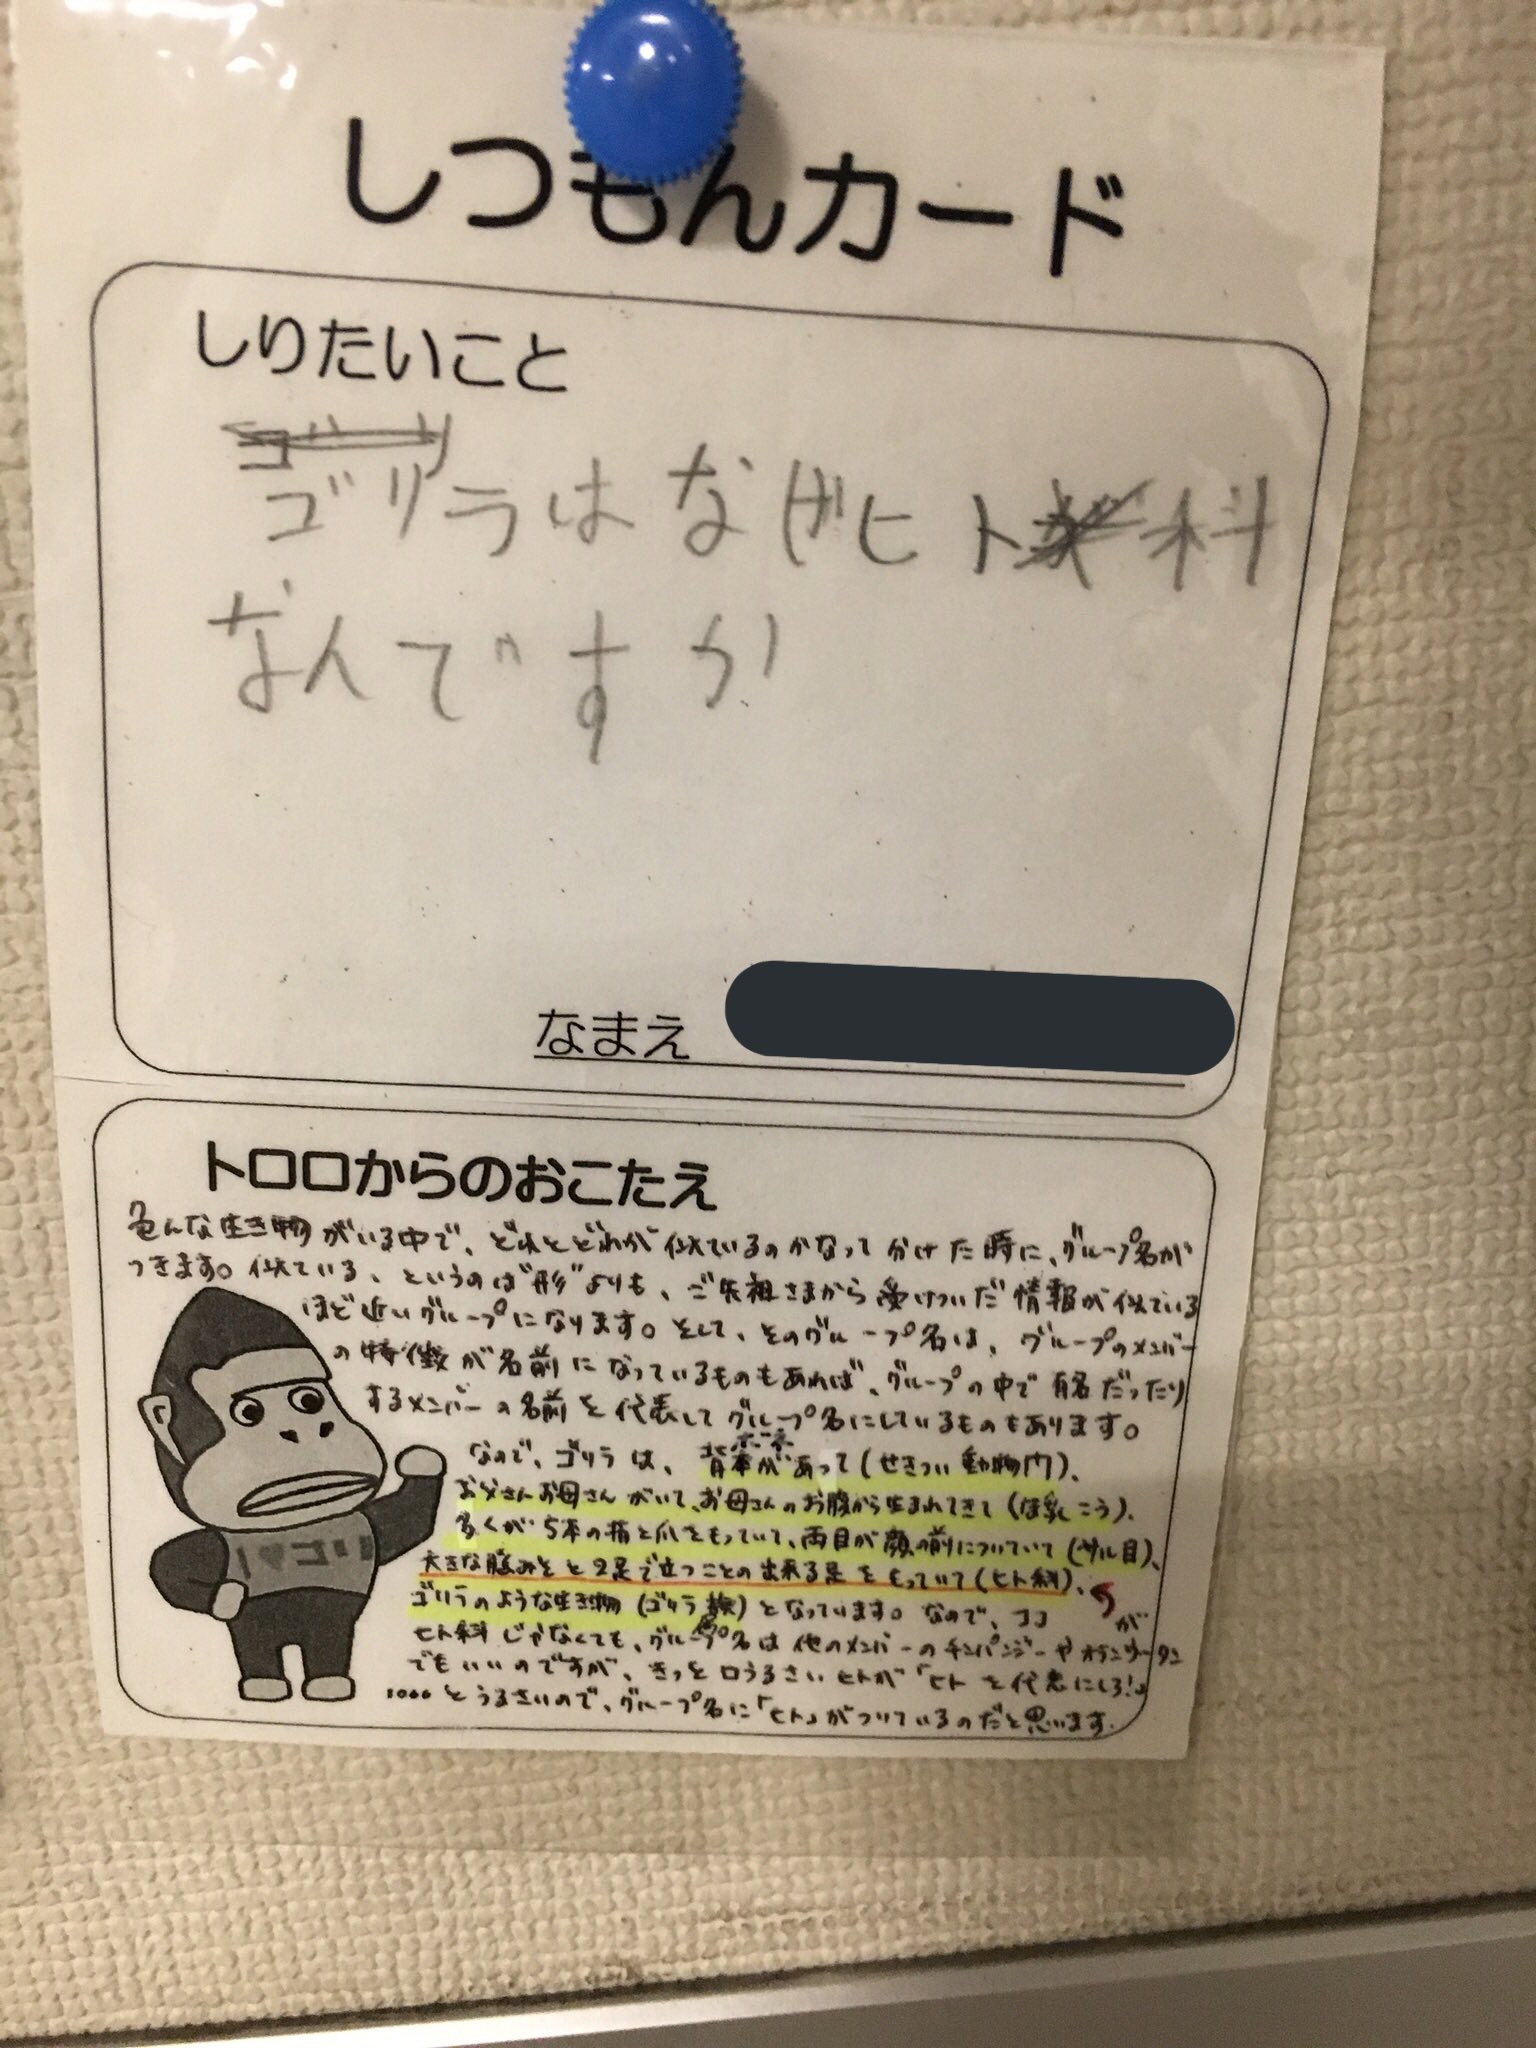 しつもんカード
しりたいこと
ゴリラはなぜヒト科
なんですか
なまえ
トロロからのおこたえ
色んな生き物がいる中で、どれとどれが似ているのかなって分けた時に、グループ名が
つきます。似ている、というのは"形"よりも、ご先祖さまから受けついだ情報が似ている
ほど近いグループになります。そして、そのグループ名は、グループのメンバー
の特徴が名前になっているものもあれば、グループの中で有名だったり
するメンバーの名前を代表してグループ名にしているものもあります。
なので、ゴリラは、背骨があって(せきつい動物門)、
お父さんお母さんがいて、お母さんのお腹から生まれてきて(ほ乳こう)、
多くが5本の指と爪をもっていて、両目が顔の前についていて(サル目)、
大きな脳みそと2足で立つことの出来る足をもっていて(ヒト科)、
ゴリラのような生き物(ゴリラ属)となっています。なので、ココが
ヒト科じゃなくても、グループ名は他のメンバーのチンパンジーやオランウータン
でもいいのですが、きっと口うるさいヒトが「ヒトを代表にしろ!」
とうるさいので、グループ名に「ヒト」がついているのだと思います。